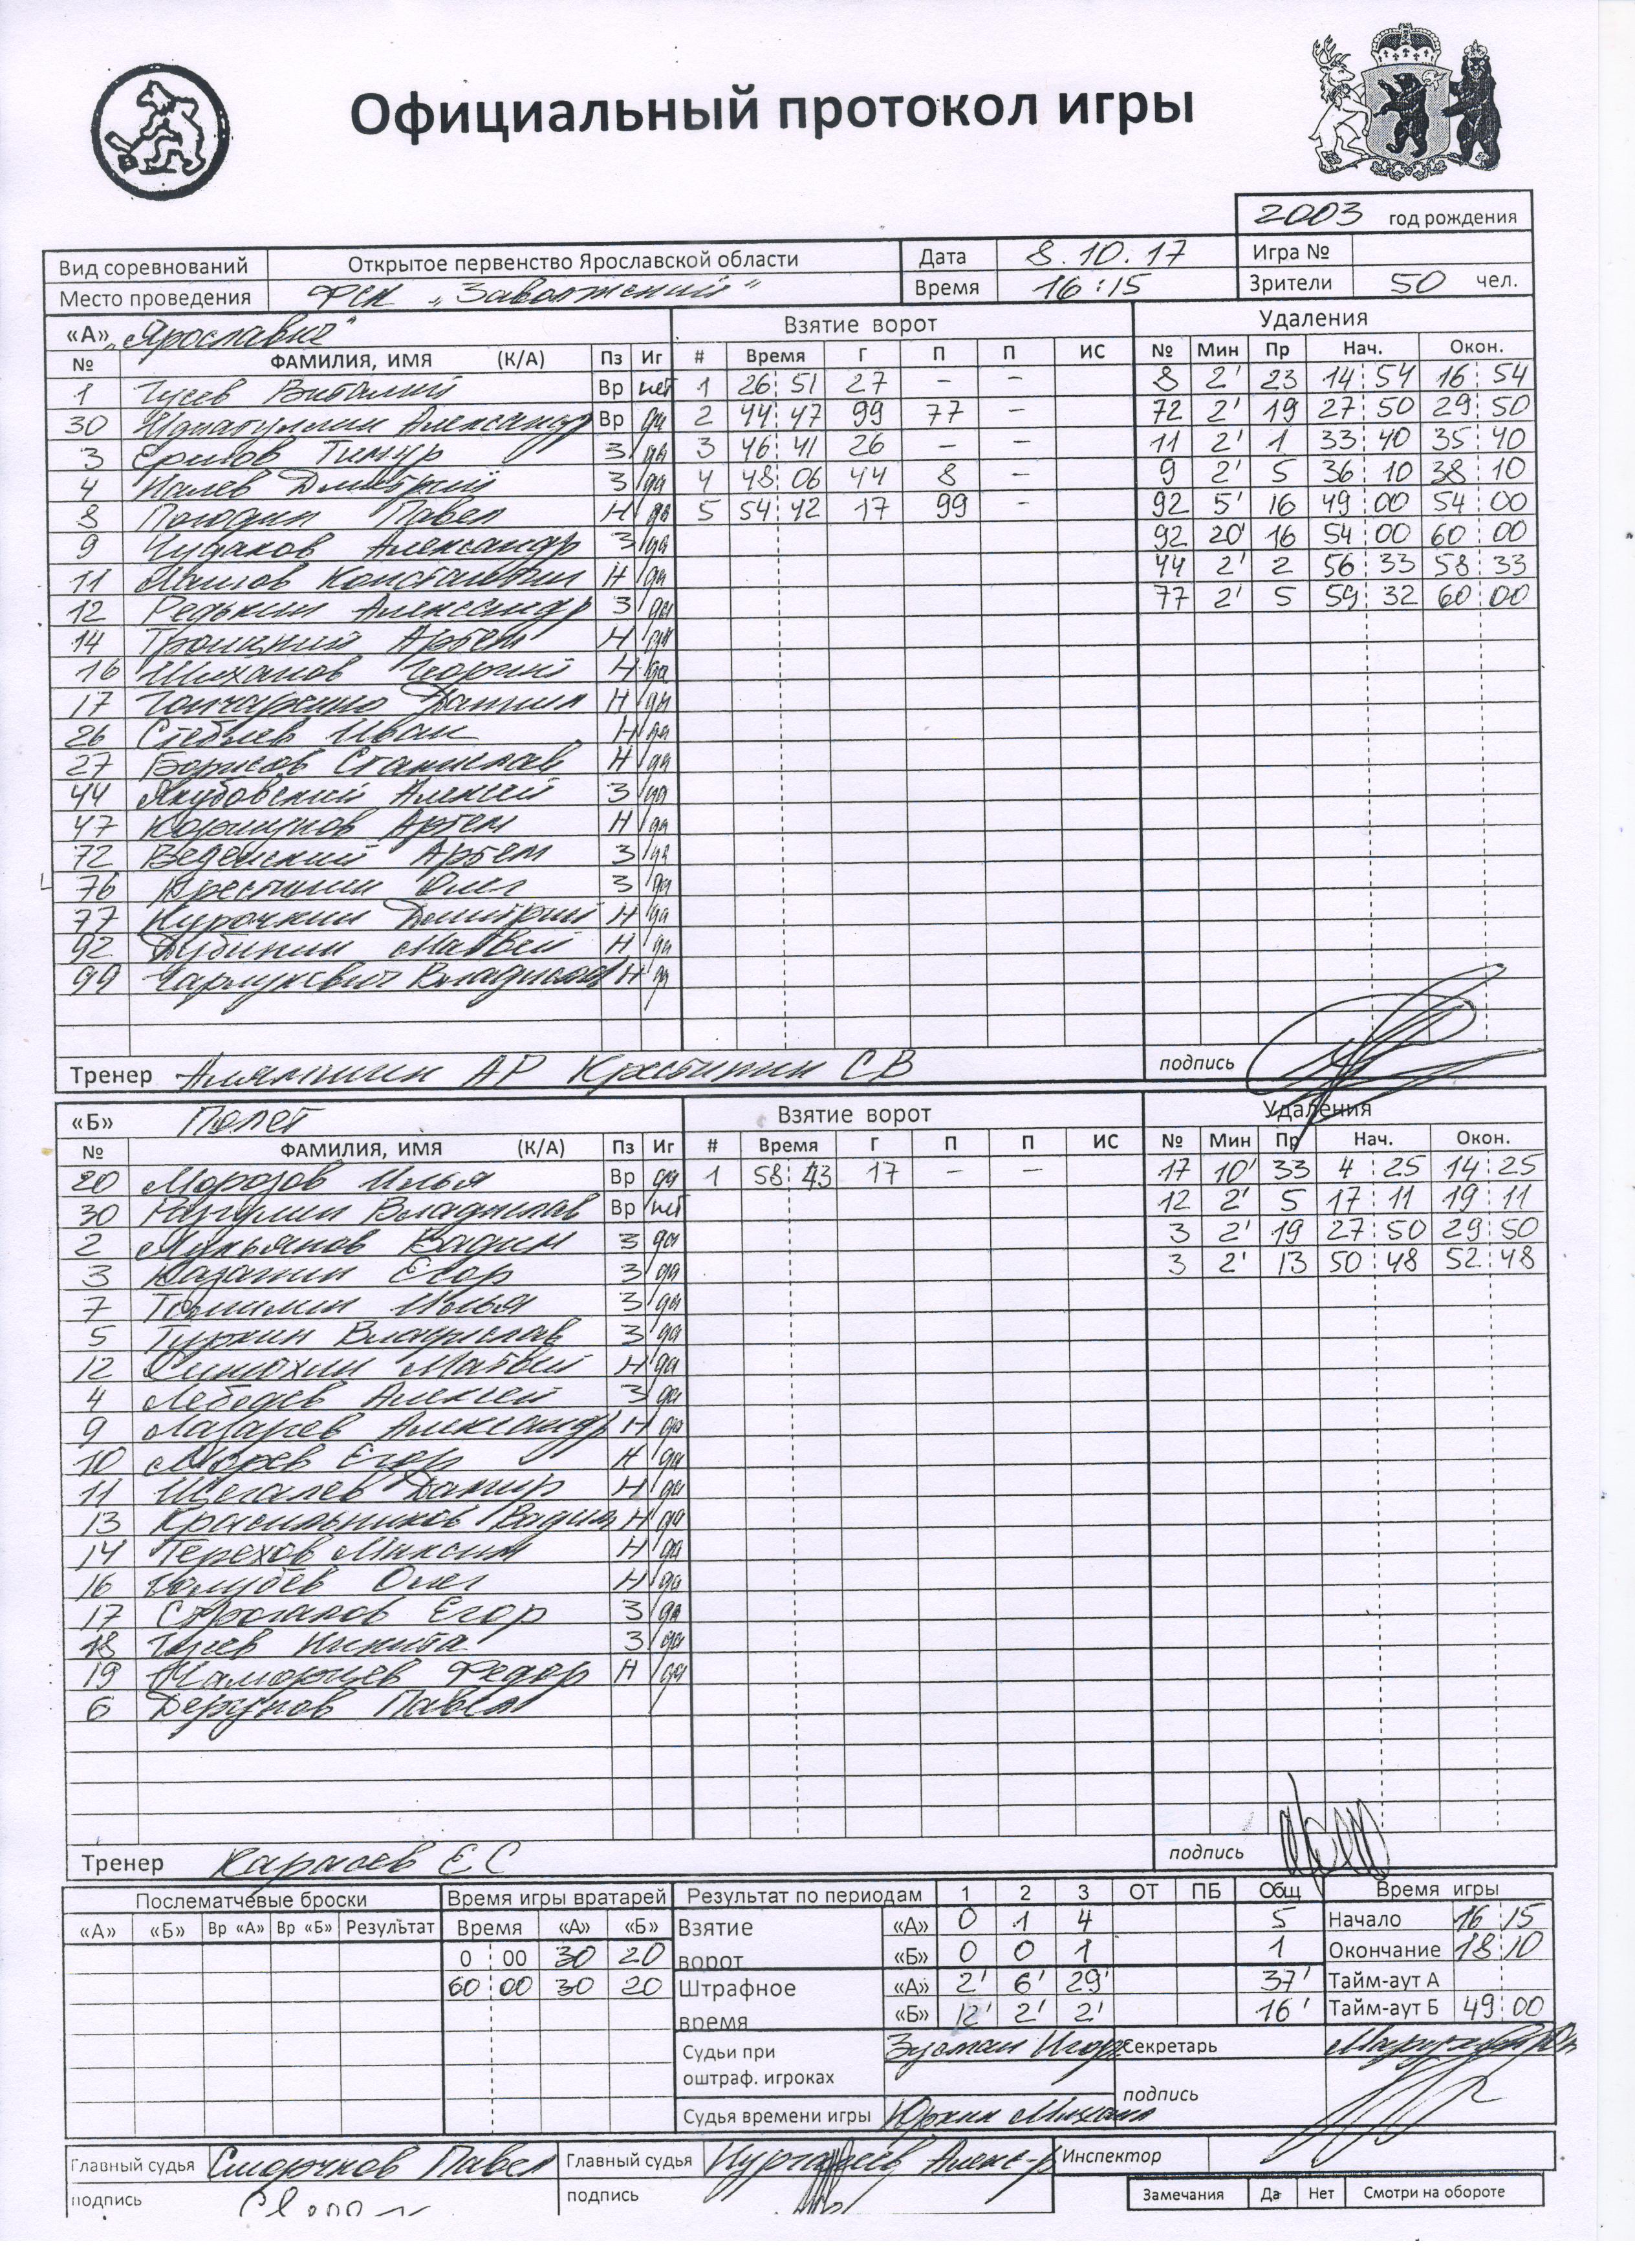 Официальный протокол игры
2003 год рождения
Вид соревнований Открытое первенство Ярославской области Дата 8.10.17 Игра №
Место проведения ФСК "Заволжский" Время 16:15 Зрители 50 чел.
«А» "Ярославич" Взятие ворот Удаления
№ ФАМИЛИЯ, ИМЯ (К/А) Пз Иг # Время Г П П ИС № Мин Пр Нач. Окон.
1 Гусев Виталий Вр нет 1 26 51 27 – – 8 2' 23 14 54 16 54
30 Александр Вр да 2 44 47 99 77 – 72 2' 19 27 50 29 50
3 Тимур З да 3 46 41 26 – – 11 2' 1 33 40 35 40
4 Дмитрий З да 4 48 06 44 8 – 9 2' 5 36 10 38 10
8 Погодин Павел Н да 5 54 42 17 99 – 92 5' 16 49 00 54 00
9 Чудаков Александр З да 92 20' 16 54 00 60 00
11 Константин Н да 44 2' 2 56 33 58 33
12 Редькин Александр З да 77 2' 5 59 32 60 00
14 Троицкий Артем Н да
16 Шиханов Георгий Н да
17 Гончаренко Даниил Н да
26 Стеблев Иван Н да
27 Борисов Станислав Н да
44 Якубовский Алексей З да
47 Коршунов Артем Н да
72 Веденский Артем З да
76 Олег З да
77 Курочкин Дмитрий Н да
92 Дубинин Матвей Н да
99 Владислав Н да
Тренер Алямкин АР СВ подпись
«Б» Полет Взятие ворот Удаления
№ ФАМИЛИЯ, ИМЯ (К/А) Пз Иг # Время Г П П ИС № Мин Пр Нач. Окон.
20 Морозов Илья Вр да 1 58 43 17 – – 17 10' 33 4 25 14 25
30 Владислав Вр нет 12 2' 5 17 11 19 11
2 Лукьянов Вадим З да 3 2' 19 27 50 29 50
3 Казанин Егор З да 3 2' 13 50 48 52 48
7 Илья З да
5 Туркин Владислав З да
12 Синюхин Матвей Н да
4 Лебедев Алексей З да
9 Лазарев Александр Н да
10 Морев Егор Н да
11 Щеголев Дамир Н да
13 Красильников Вадим Н да
14 Терехов Максим Н да
16 Голубев Олег Н да
17 Строганов Егор З да
18 Гусев Никита З да
19 Федор Н да
6 Дерунов Павел
Тренер Карасев ЕС подпись
Послематчевые броски Время игры вратарей Результат по периодам 1 2 3 ОТ ПБ Общ Время игры
«А» «Б» Вр «А» Вр «Б» Результат Время «А» «Б» Взятие «А» 0 1 4 5 Начало 16 15
0 00 30 20 ворот «Б» 0 0 1 1 Окончание 18 10
60 00 30 20 Штрафное «А» 2' 6' 29' 37' Тайм-аут А
время «Б» 12' 2' 2' 16' Тайм-аут Б 49:00
Судьи при Зусман Игорь Секретарь
оштраф. игроках
подпись
Судья времени игры Юркин Михаил
Главный судья Сморчков Павел Главный судья Алекс-р Инспектор
подпись подпись Замечания Да Нет Смотри на обороте